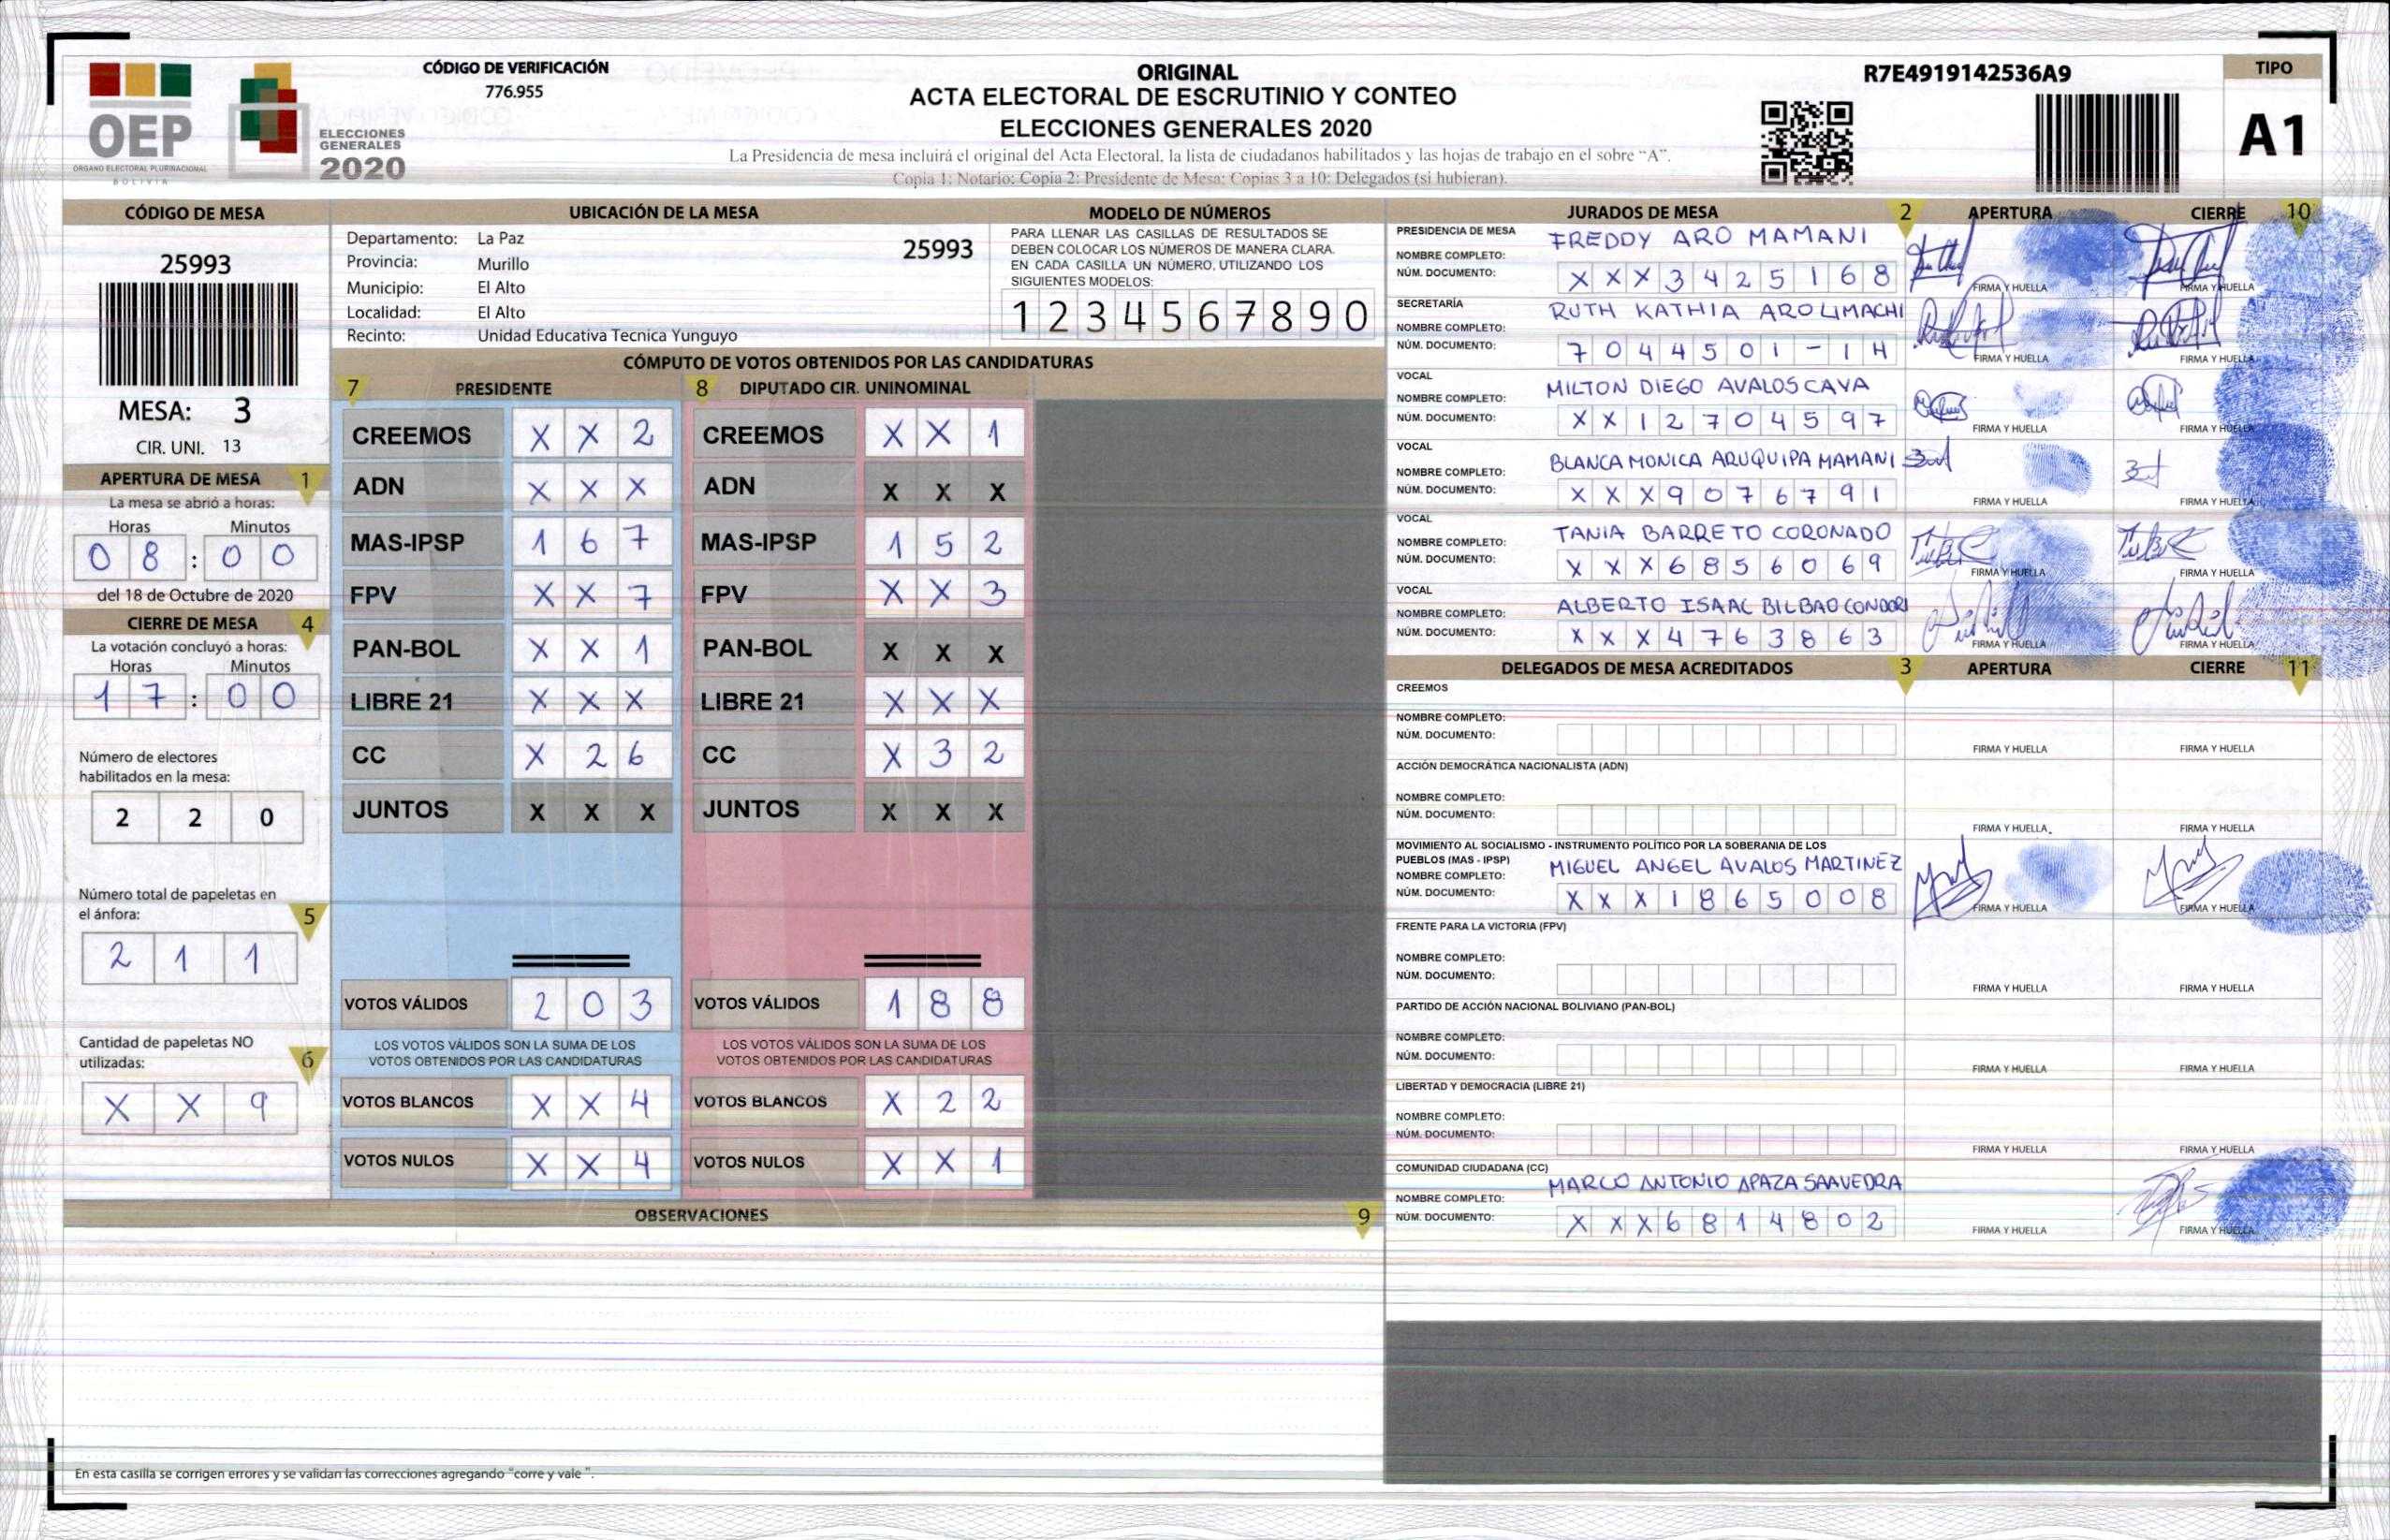 OEP
ORGANO ELECTORAL PLURINACIONAL
BOLIVIA
ELECCIONES
GENERALES
2020
CÓDIGO DE VERIFICACIÓN
776.955
ORIGINAL
ACTA ELECTORAL DE ESCRUTINIO Y CONTEO
ELECCIONES GENERALES 2020
La Presidencia de mesa incluirá el original del Acta Electoral, la lista de ciudadanos habilitados y las hojas de trabajo en el sobre "A".
Copia 1: Notario; Copia 2: Presidente de Mesa; Copias 3 a 10: Delegados (si hubieran).
R7E4919142536A9
TIPO
A1
CÓDIGO DE MESA
25993
MESA: 3
CIR. UNI. 13
APERTURA DE MESA 1
La mesa se abrió a horas:
Horas Minutos
0 8 : 0 0
del 18 de Octubre de 2020
CIERRE DE MESA 4
La votación concluyó a horas:
Horas Minutos
1 7 : 0 0
Número de electores
habilitados en la mesa:
2 2 0
Número total de papeletas en
el ánfora: 5
2 1 1
Cantidad de papeletas NO
utilizadas: 6
X X 9
UBICACIÓN DE LA MESA
Departamento: La Paz
25993
Provincia: Murillo
Municipio: El Alto
Localidad: El Alto
Recinto: Unidad Educativa Tecnica Yunguyo
MODELO DE NÚMEROS
PARA LLENAR LAS CASILLAS DE RESULTADOS SE
DEBEN COLOCAR LOS NÚMEROS DE MANERA CLARA.
EN CADA CASILLA UN NÚMERO, UTILIZANDO LOS
SIGUIENTES MODELOS:
1 2 3 4 5 6 7 8 9 0
CÓMPUTO DE VOTOS OBTENIDOS POR LAS CANDIDATURAS
7 PRESIDENTE 8 DIPUTADO CIR. UNINOMINAL
CREEMOS X X 2 CREEMOS X X 1
ADN X X X ADN X X X
MAS-IPSP 1 6 7 MAS-IPSP 1 5 2
FPV X X 7 FPV X X 3
PAN-BOL X X 1 PAN-BOL X X X
LIBRE 21 X X X LIBRE 21 X X X
CC X 2 6 CC X 3 2
JUNTOS X X X JUNTOS X X X
VOTOS VÁLIDOS 2 0 3 VOTOS VÁLIDOS 1 8 8
LOS VOTOS VÁLIDOS SON LA SUMA DE LOS LOS VOTOS VÁLIDOS SON LA SUMA DE LOS
VOTOS OBTENIDOS POR LAS CANDIDATURAS VOTOS OBTENIDOS POR LAS CANDIDATURAS
VOTOS BLANCOS X X 4 VOTOS BLANCOS X 2 2
VOTOS NULOS X X 4 VOTOS NULOS X X 1
OBSERVACIONES 9
En esta casilla se corrigen errores y se validan las correcciones agregando "corre y vale ".
JURADOS DE MESA 2 APERTURA CIERRE 10
PRESIDENCIA DE MESA
NOMBRE COMPLETO: FREDDY ARO MAMANI
NÚM. DOCUMENTO: X X X 3 4 2 5 1 6 8
FIRMA Y HUELLA FIRMA Y HUELLA
SECRETARÍA
NOMBRE COMPLETO: RUTH KATHIA ARO LIMACHI
NÚM. DOCUMENTO: 7 0 4 4 5 0 1 - 1 H
FIRMA Y HUELLA FIRMA Y HUELLA
VOCAL
NOMBRE COMPLETO: MILTON DIEGO AVALOS CAVA
NÚM. DOCUMENTO: X X 1 2 7 0 4 5 9 7
FIRMA Y HUELLA FIRMA Y HUELLA
VOCAL
NOMBRE COMPLETO: BLANCA MONICA ARUQUIPA MAMANI
NÚM. DOCUMENTO: X X X 9 0 7 6 7 9 1
FIRMA Y HUELLA FIRMA Y HUELLA
VOCAL
NOMBRE COMPLETO: TANIA BARRETO CORONADO
NÚM. DOCUMENTO: X X X 6 8 5 6 0 6 9
FIRMA Y HUELLA FIRMA Y HUELLA
VOCAL
NOMBRE COMPLETO: ALBERTO ISAAC BILBAO CONDORI
NÚM. DOCUMENTO: X X X 4 7 6 3 8 6 3
FIRMA Y HUELLA FIRMA Y HUELLA
DELEGADOS DE MESA ACREDITADOS 3 APERTURA CIERRE 11
CREEMOS
NOMBRE COMPLETO:
NÚM. DOCUMENTO:
FIRMA Y HUELLA FIRMA Y HUELLA
ACCIÓN DEMOCRÁTICA NACIONALISTA (ADN)
NOMBRE COMPLETO:
NÚM. DOCUMENTO:
FIRMA Y HUELLA FIRMA Y HUELLA
MOVIMIENTO AL SOCIALISMO - INSTRUMENTO POLÍTICO POR LA SOBERANIA DE LOS
PUEBLOS (MAS - IPSP)
NOMBRE COMPLETO: MIGUEL ANGEL AVALOS MARTINEZ
NÚM. DOCUMENTO: X X X 1 8 6 5 0 0 8
FIRMA Y HUELLA FIRMA Y HUELLA
FRENTE PARA LA VICTORIA (FPV)
NOMBRE COMPLETO:
NÚM. DOCUMENTO:
FIRMA Y HUELLA FIRMA Y HUELLA
PARTIDO DE ACCIÓN NACIONAL BOLIVIANO (PAN-BOL)
NOMBRE COMPLETO:
NÚM. DOCUMENTO:
FIRMA Y HUELLA FIRMA Y HUELLA
LIBERTAD Y DEMOCRACIA (LIBRE 21)
NOMBRE COMPLETO:
NÚM. DOCUMENTO:
FIRMA Y HUELLA FIRMA Y HUELLA
COMUNIDAD CIUDADANA (CC)
NOMBRE COMPLETO: MARCO ANTONIO APAZA SAAVEDRA
NÚM. DOCUMENTO: X X X 6 8 1 4 8 0 2
FIRMA Y HUELLA FIRMA Y HUELLA